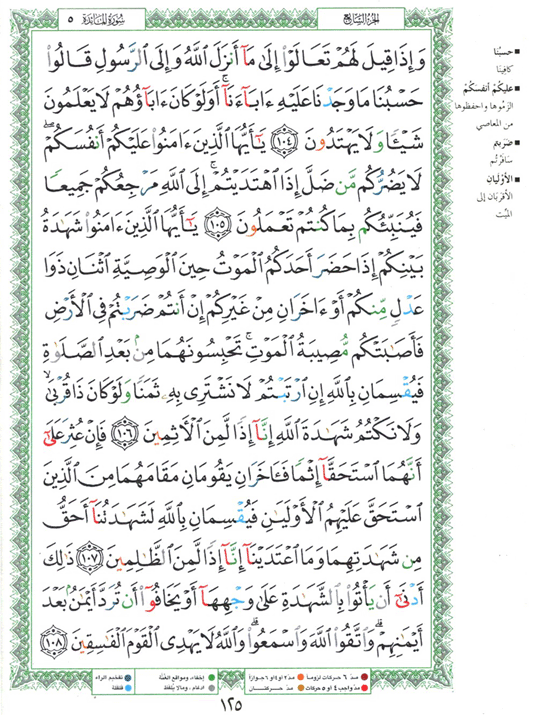 الجزء السابع
سورة المائدة ٥
وَإِذَا قِيلَ لَهُمْ تَعَالَوْا۟ إِلَىٰ مَآ أَنزَلَ ٱللَّهُ وَإِلَى ٱلرَّسُولِ قَالُوا۟
حَسْبُنَا مَا وَجَدْنَا عَلَيْهِ ءَابَآءَنَآ ۚ أَوَلَوْ كَانَ ءَابَآؤُهُمْ لَا يَعْلَمُونَ
شَيْـًٔا وَلَا يَهْتَدُونَ ۝١٠٤ يَـٰٓأَيُّهَا ٱلَّذِينَ ءَامَنُوا۟ عَلَيْكُمْ أَنفُسَكُمْ ۖ
لَا يَضُرُّكُم مَّن ضَلَّ إِذَا ٱهْتَدَيْتُمْ ۚ إِلَى ٱللَّهِ مَرْجِعُكُمْ جَمِيعًا
فَيُنَبِّئُكُم بِمَا كُنتُمْ تَعْمَلُونَ ۝١٠٥ يَـٰٓأَيُّهَا ٱلَّذِينَ ءَامَنُوا۟ شَهَـٰدَةُ
بَيْنِكُمْ إِذَا حَضَرَ أَحَدَكُمُ ٱلْمَوْتُ حِينَ ٱلْوَصِيَّةِ ٱثْنَانِ ذَوَا
عَدْلٍ مِّنكُمْ أَوْ ءَاخَرَانِ مِنْ غَيْرِكُمْ إِنْ أَنتُمْ ضَرَبْتُمْ فِى ٱلْأَرْضِ
فَأَصَـٰبَتْكُم مُّصِيبَةُ ٱلْمَوْتِ ۚ تَحْبِسُونَهُمَا مِنۢ بَعْدِ ٱلصَّلَوٰةِ
فَيُقْسِمَانِ بِٱللَّهِ إِنِ ٱرْتَبْتُمْ لَا نَشْتَرِى بِهِۦ ثَمَنًا وَلَوْ كَانَ ذَا قُرْبَىٰ ۙ
وَلَا نَكْتُمُ شَهَـٰدَةَ ٱللَّهِ إِنَّآ إِذًا لَّمِنَ ٱلْـَٔاثِمِينَ ۝١٠٦ فَإِنْ عُثِرَ عَلَىٰٓ
أَنَّهُمَا ٱسْتَحَقَّآ إِثْمًا فَـَٔاخَرَانِ يَقُومَانِ مَقَامَهُمَا مِنَ ٱلَّذِينَ
ٱسْتَحَقَّ عَلَيْهِمُ ٱلْأَوْلَيَـٰنِ فَيُقْسِمَانِ بِٱللَّهِ لَشَهَـٰدَتُنَآ أَحَقُّ
مِن شَهَـٰدَتِهِمَا وَمَا ٱعْتَدَيْنَآ إِنَّآ إِذًا لَّمِنَ ٱلظَّـٰلِمِينَ ۝١٠٧ ذَٰلِكَ
أَدْنَىٰٓ أَن يَأْتُوا۟ بِٱلشَّهَـٰدَةِ عَلَىٰ وَجْهِهَآ أَوْ يَخَافُوٓا۟ أَن تُرَدَّ أَيْمَـٰنٌۢ بَعْدَ
أَيْمَـٰنِهِمْ ۗ وَٱتَّقُوا۟ ٱللَّهَ وَٱسْمَعُوا۟ ۗ وَٱللَّهُ لَا يَهْدِى ٱلْقَوْمَ ٱلْفَـٰسِقِينَ ۝١٠٨
■ حسبُنا
كافينا
■ عليكُمْ أنفسَكُمْ
الزَمُوها واحفظوها
من المعاصي
■ ضَرَبتم
سافَرْتُم
■ الأوْلَيانِ
الأقربَان إلى
الميِّت
مدّ ٦ حركات لزوماً
مدّ ٢ أو ٤ أو ٦ جوازاً
مدّ واجب ٤ أو ٥ حركات
مدّ حركتان
إخفاء، ومواقع الغُنَّة
ادغام، وما لا يُلفَظ
تفخيم الراء
قلقلة
١٢٥